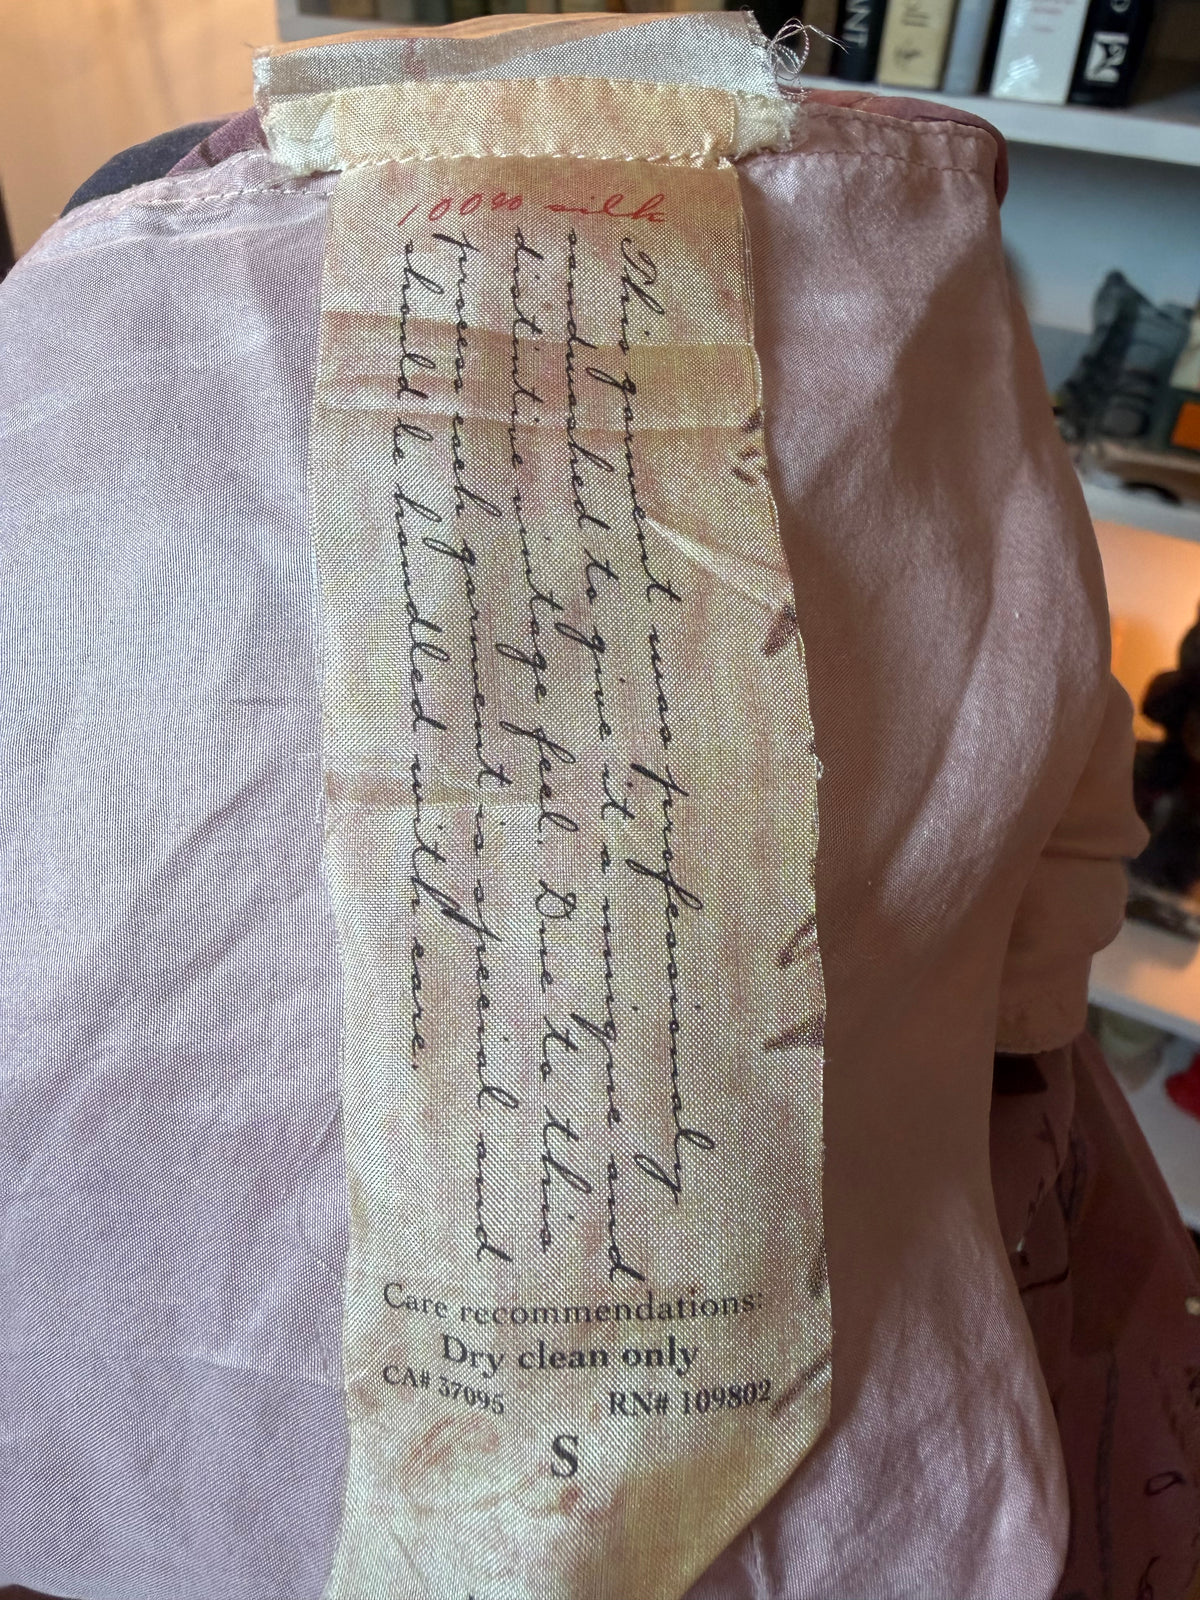 100% silk
This garment was professionaly
sandwashed to give it a unique and
distintive vintage feel. Due to this
process each garment is special and
should be handled with care.
Care recommendations:
Dry clean only
CA# 37095 RN# 109802
S
ANT